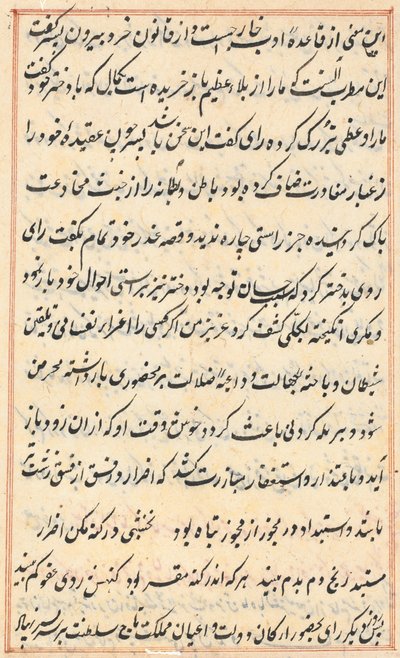 این سخن از قاعدهٔ ادب خارجست و از قانون خرد بیرون پسر گفت
این مطرب آنست که ما را از بلاء عظیم باز خریده است بحال که با دختر خود گفت
ما را وعظی بزرگ کرده رای گفت این سخن باشد پسر چون عقیدهٔ خود را
ز غبار معاورت صاف کرده بود باطن و بطانه را از خبث مخادعت
پاک گردانیده جز راستی چاره ندید و قصه غدر خود تمام بگفت رای
روی بدختر کرد که چسان توجه بود دختر نیز براستی احوال خود باز نمود
و مکری انگیخته بکلی کشف کرد عزیز من اگر کسی را اغراء نفسانی و تلقین
شیطان و باعثهٔ جهالت و داعیهٔ ضلالت بر محضوری بار داشته مجرمن
شود و بر مله کردنی باعث گردد خوش وقت او که از ان زود باز
آید و باعتذار و استغفار مبادرت کند که اضرار و فسق از فسق زشت تر
باشد و استبداد در مجوز از مجوز تباه بود نخشبی در گنه مکن اضرار
مستبد رنج دم بدم بیند هر که اندر گنه مقر بود گنهش روی عفو کم بیند
پس روز دیگر رای بحضور ارکان دولت و اعیان مملکت تاج سلطنت بر سر پسر نهاد